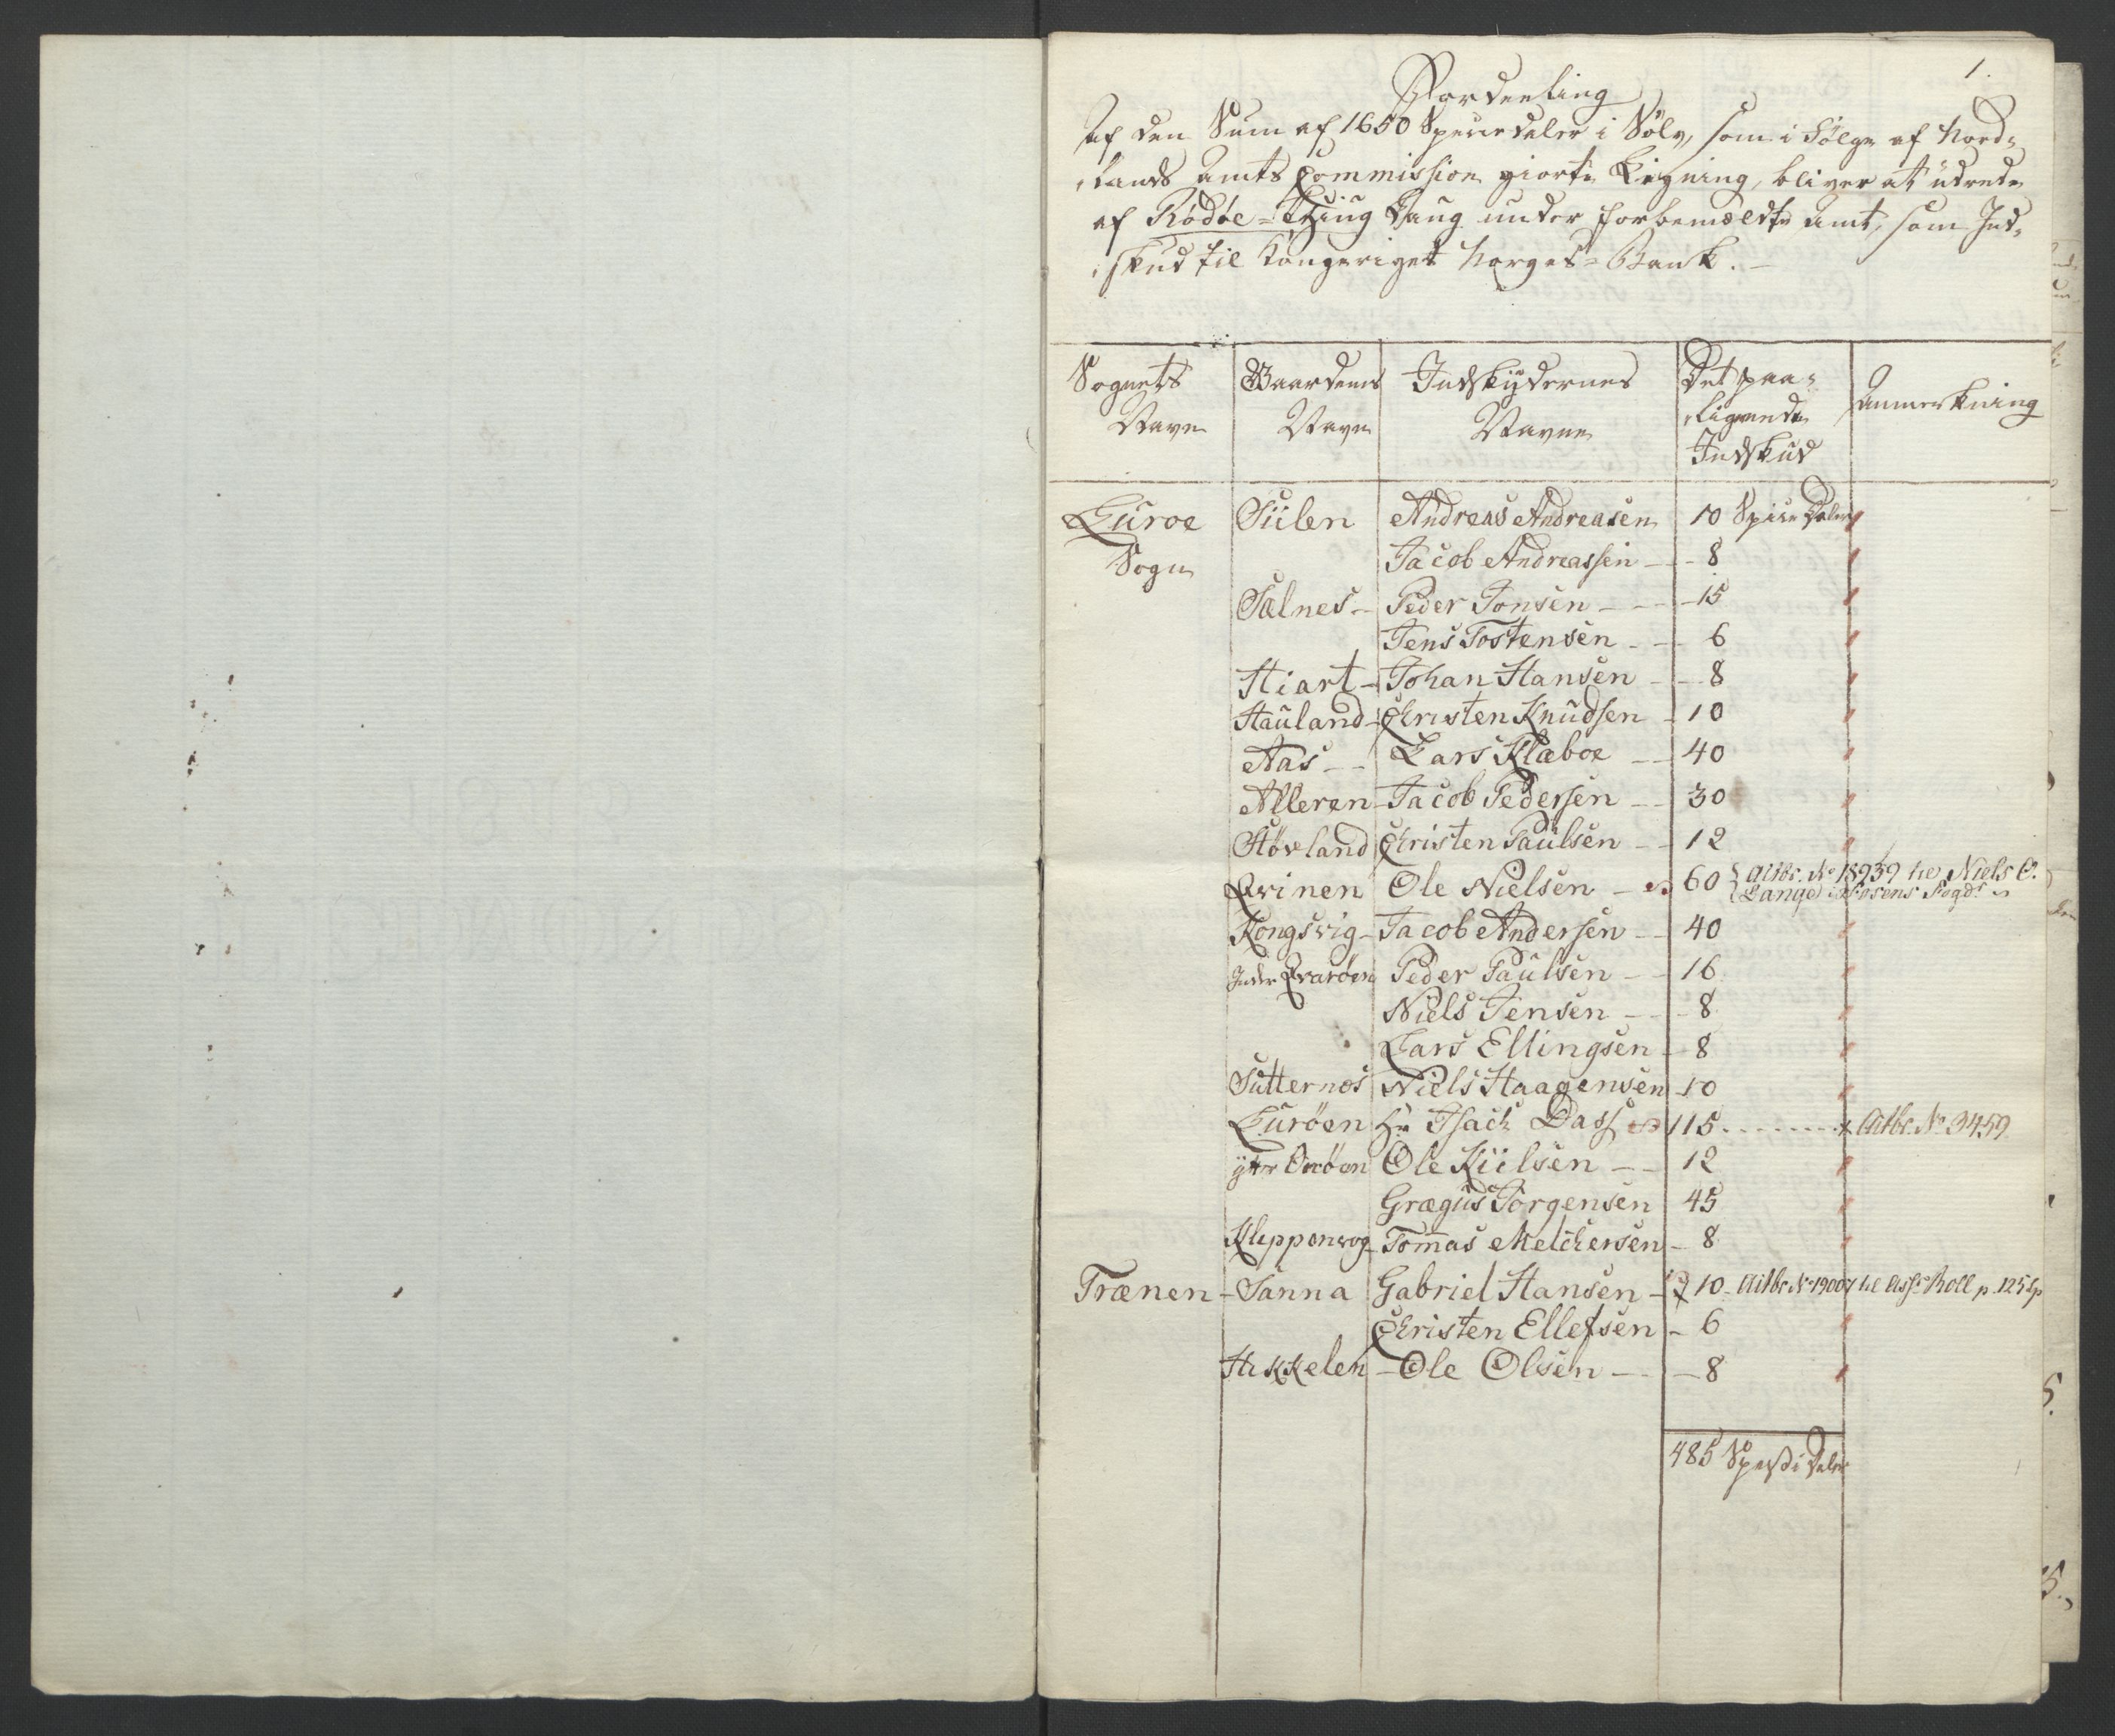 1.
Fordeeling
Af den Sum af 1650 Speciedaler i Sölv, som i Fölge af Nord¬
lands Amts Commission giorte Ligning, bliver at udrede
af Rödöe-Thing Laug under forbemældte Amt, som Ind¬
skud til Kongeriget Norges-Bank.
Sognets Navn | Gaardens Navn | Indskydernes Navne | Det paa¬lignende Indskud | Anmerkning
Luroe Sogn | Siilen | Andreas Andreasen | 10 Specie Daler
Jacob Andreassen - 8
Sælnes - Peder Jonsen - 15
Jens Tostensen - 6
Hiart - Johan Hansen - 8
Hauland - Christen Knudsen - 10
Aas - Lars Klæboe - 40
Alleren - Jacob Pedersen - 30
Støvland Christen Paulsen - 12
Qvinen Ole Nielsen - 60 { Aitbr. No 18939 til Niels O.
Lange i Fosens Fogd.
Kongsvig - Jacob Andersen - 40
Inder Qvaröen Peder Paulsen - 16
Niels Jensen - 8
Lars Ellingsen - 8
Sutternes Niels Haagensen 10
Luröen Hr Isach Dass 115 - - - - x Aitbr. No 3459
ytter Qvaröen Ole Kiilsen - 12
Grægus Jörgensen 45
Kleppenvog - Tom̄as Melchersen - 8
Trænen - Sanna Gabriel Hansen - 10 - Aitbr No 19007 til Ass. Roll p. 125 Sp
Christen Ellefsen - 6
Hikkelen - Ole Olsen - 8
485 Speci Daler